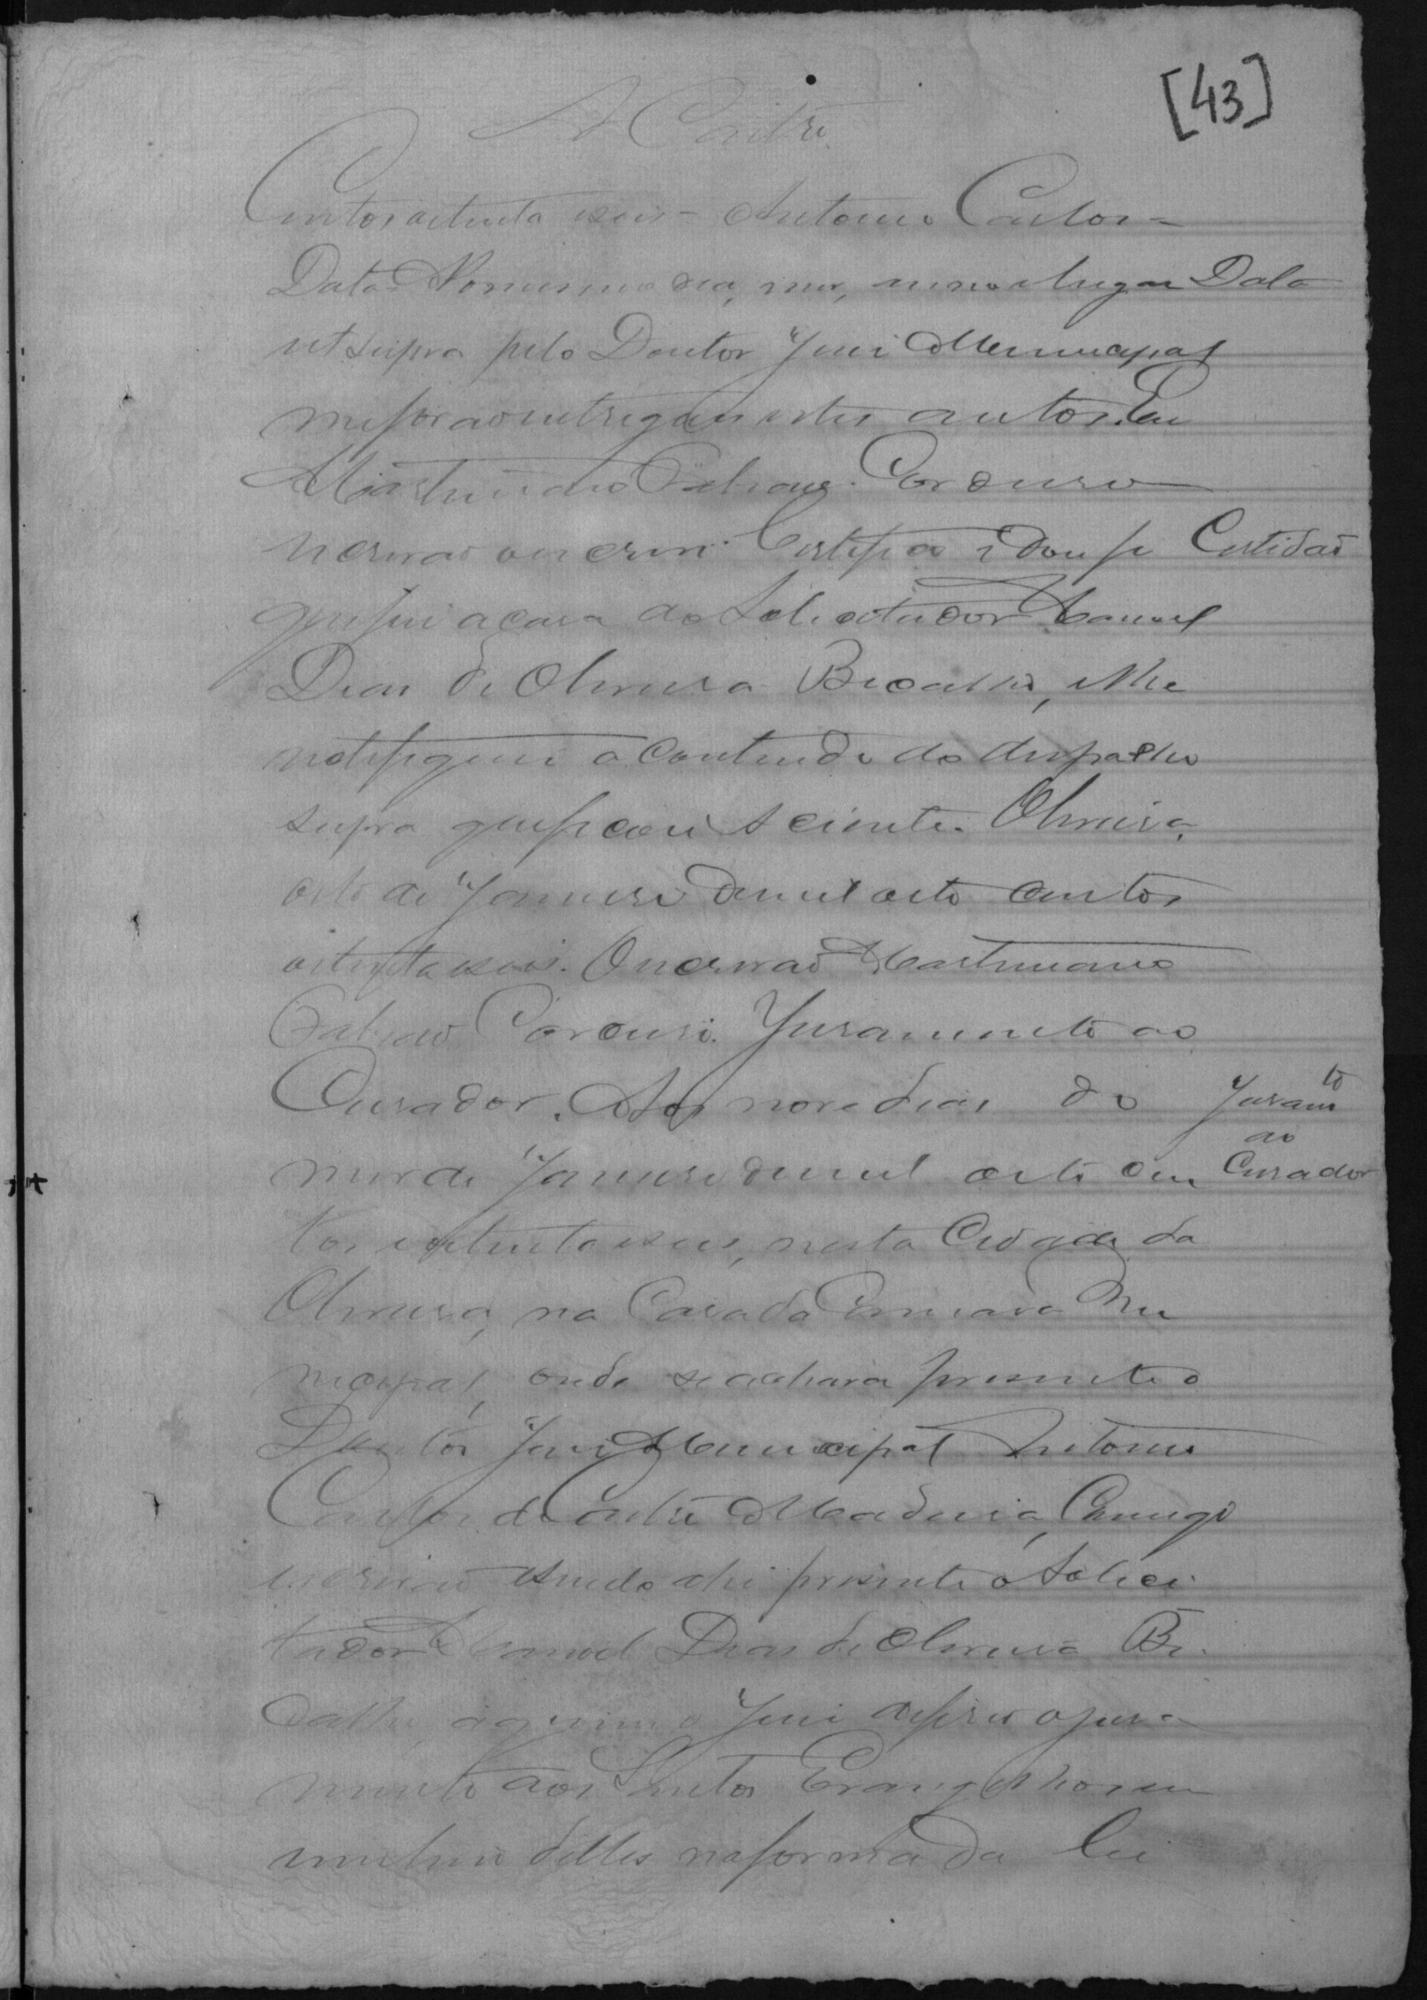 [43]
A Castro
Centos oitenta e seis = Antonio Carlos =
Data = No mesmo dia, mez, anno e lugar Data
ut supra pelo Doutor Juiz Municipal
me forão entregues estes autos. Eu
Martiniano Cardoso
escrivão o escrevi. Certifico e dou fe Certidão
que fui a casa do Solicitador Manoel
Dias de Oliveira Bicalho, e lhe
notifiquei o conteudo do despacho
supra que ficou sciente. Oliveira,
oito de Janeiro de mil oito centos
oitenta e seis. O escrivão Martiniano
Cardoso. Juramento ao
Curador. Aos nove dias do Juramto
ao
mez de Janeiro de mil oito cen Curador
tos e oitenta e seis, nesta Cidade da
Oliveira, na Casa da Camara Mu
nicipal, onde se achava presente o
Doutor Juiz Municipal Antonio
Carlos de Castro Madeira, Comigo
escrivão sendo ahi presente o Solici
tador Manoel Dias de Oliveira Bi
calho, a quem o Juiz deferio o jura
mento aos Santos Evangelhos em
um livro delles na forma da lei